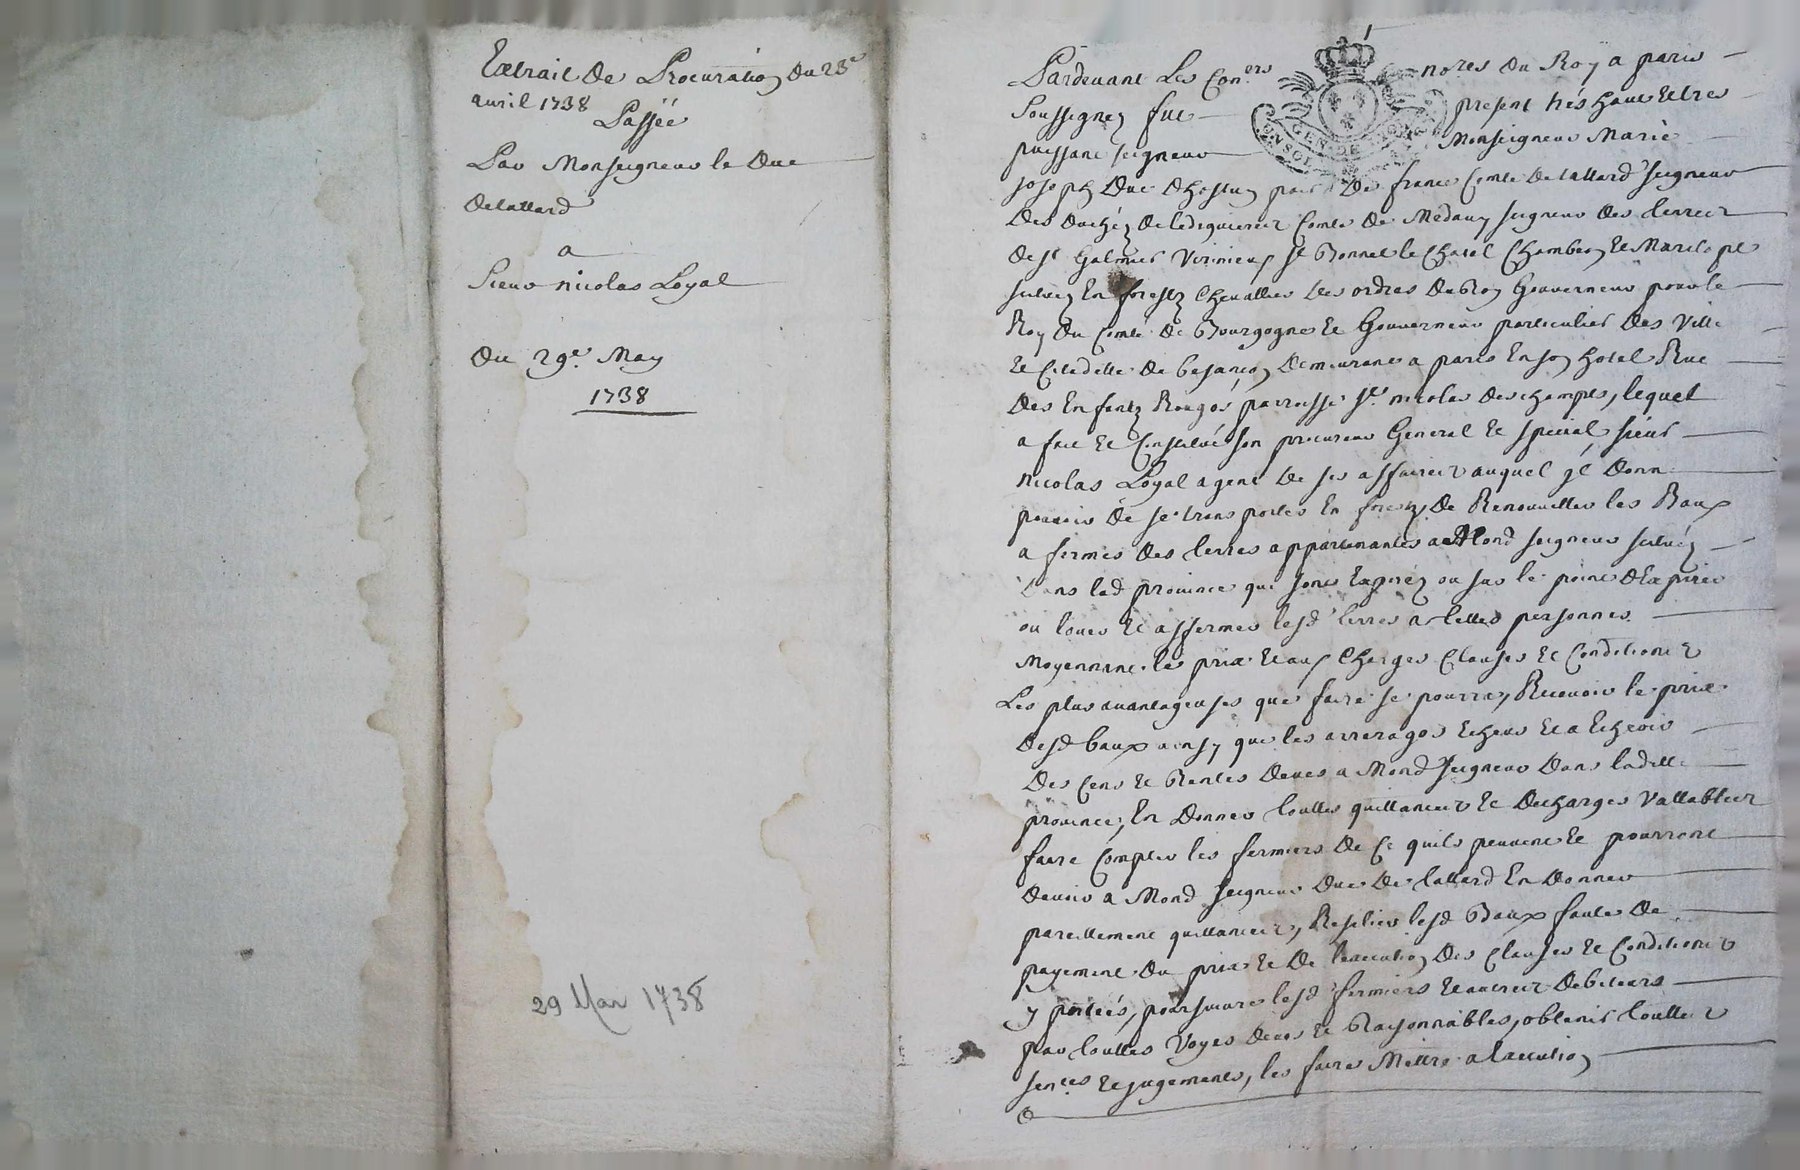 Extrait De Procuration Du 23e
avril 1738
Passée
Par Monseigneur le Duc
Detallard
a
Sieur nicolas Loyal
Du 29e. May
1738
29 Mar 1738
Pardevant Les Con.ers no.res Du Roy a paris
Soussignez fut present trés haut et tres
puissant seigneur Monseigneur Marie
Joseph Duc Dhostun pair De france Comte Detallard Seigneur
Des Duchéz Deledeguieres Comte De Medavy seigneur Des terres
De St Galmier Virinieux St Bonnet le Chatel Chambeon et Marclopt
scituez En forestz Chevallier Des ordres Du Roy Gouverneur pour le
Roy Du Comté De Bourgogne et Gouverneur particulier Des Ville
et Citadelle De besançon Demeurant a paris En son hotel Rue
Des Enfantz Rouges parroisse St. nicolas Deschamps, lequel
a fait et Constitué son procureur General et special sieur
nicolas Loyal agent De ses affaires auquel yl Donne
pouvoir De se transporter En forestz, De Renouveller les Baux
a fermes Des terres appartenantes a Mond seigneur scituéz
Dans lad province qui sont Expiréz ou sur le point DExpirer
ou louer et affermer lesd terres a telles personnes
Moyennant les prix et aux Charges Clauses et Conditions
Les plus avantageuses que faire se pourra, Recevoir le prix
Desd baux ainsy que les arrerages Echeus et a Echeoir
Des Cens et Rentes Deues a Mond Seigneur Dans ladille
province, En Donner touttes quittances et Decharges Vallables
faire Compter les fermiers De Ce quils peuvent et pourront
Devoir a Mond Seigneur Duc De tallard En Donner
pareillement quittances, Resilier lesd Baux faute De
payement Du prix et De lexecution Des Clauses et Conditions
y portées, poursuivre lesd fermiers et autres Debiteurs
par touttes Voyes Deues et Raisonnables, obtenir touttes
sen.ces et jugements, les faire Mettre a Execution